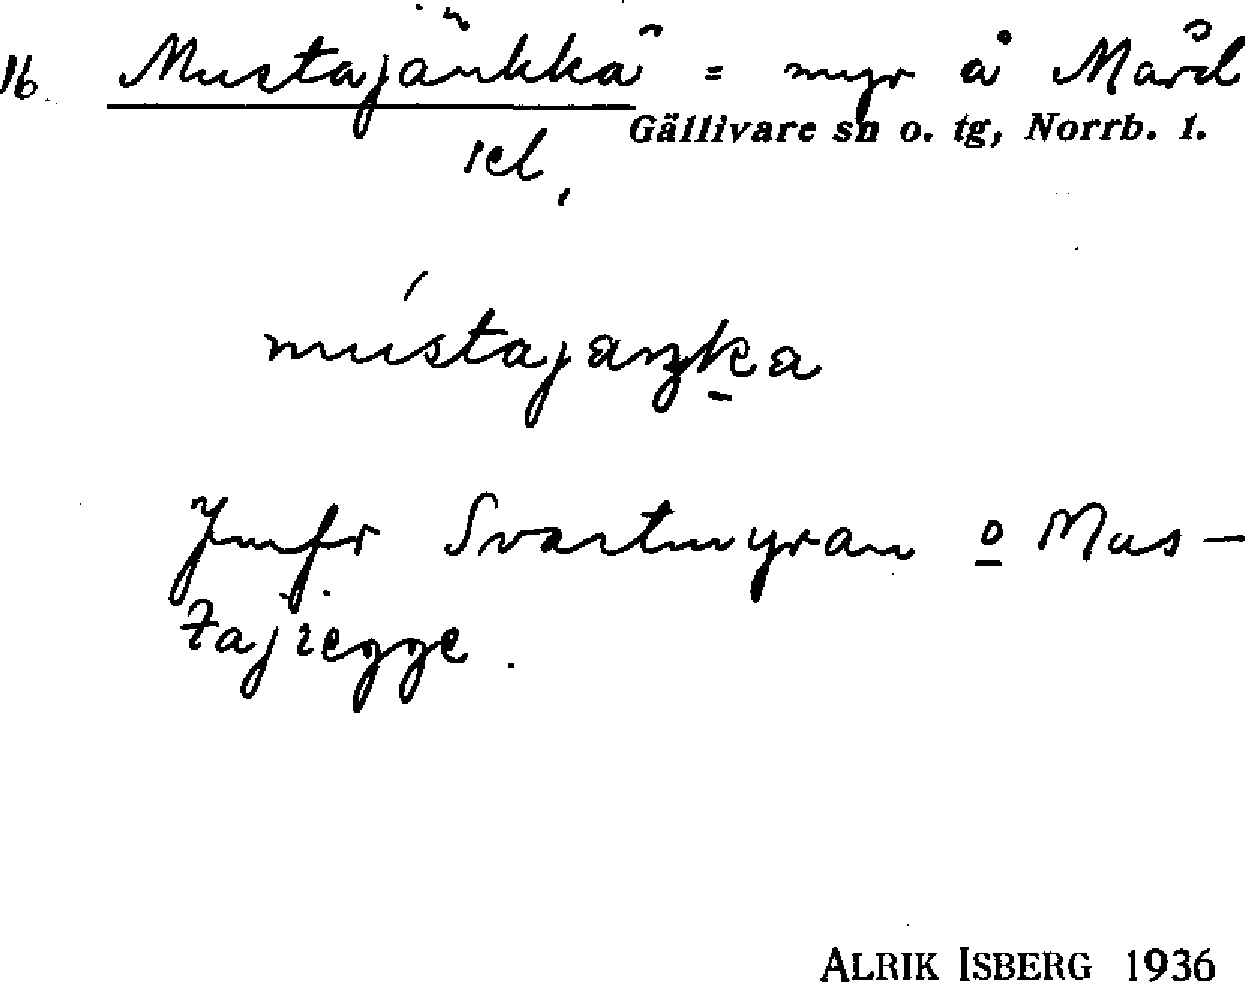 16 Mustajänkkä = myr å Mård
Gällivare sn o. tg, Norrb. l.
sel,
mústajaŋka
Jmfr Svartmyran o Mus-
tajiegge.
ALRIK ISBERG 1936